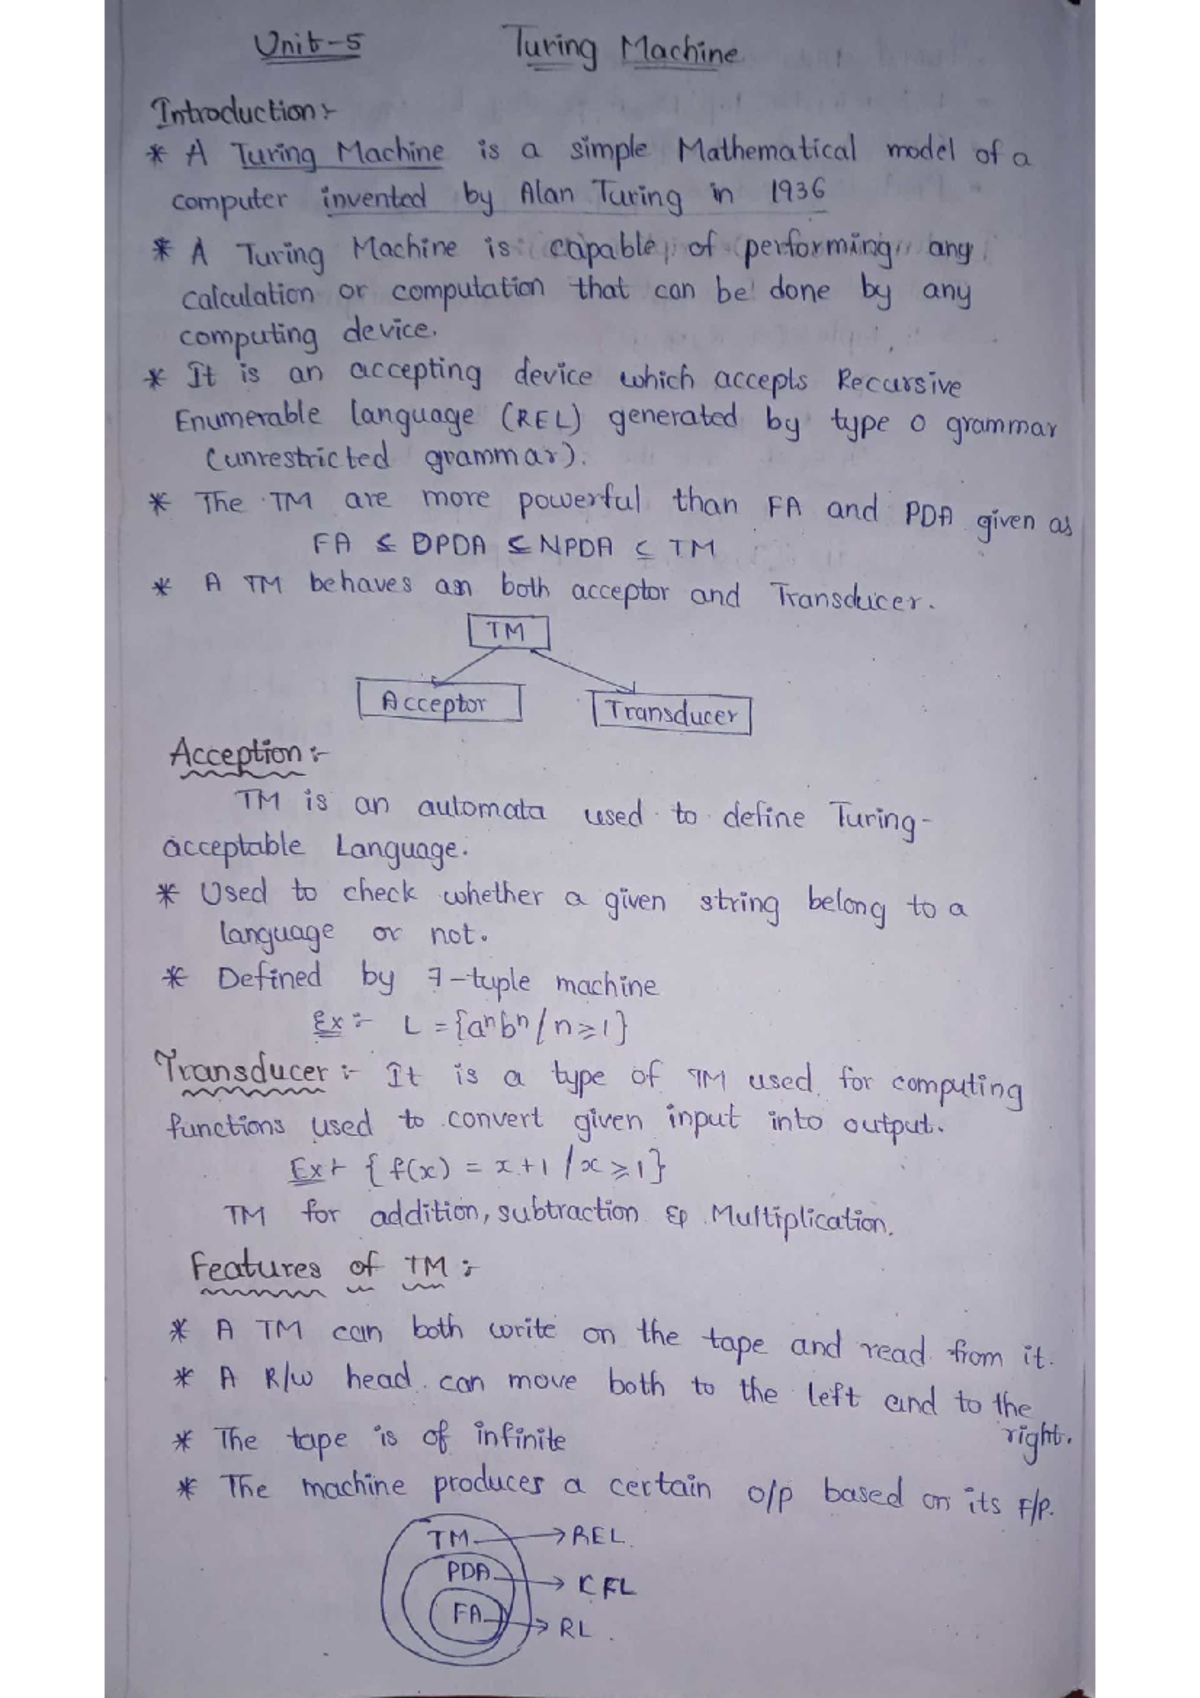 Unit-5 Turing Machine
Introduction :-
* A Turing Machine is a simple Mathematical model of a
computer invented by Alan Turing in 1936
* A Turing Machine is capable of performing any
calculation or computation that can be done by any
computing device.
* It is an accepting device which accepts Recursive
Enumerable language (REL) generated by type 0 grammar
(unrestricted grammar).
* The TM are more powerful than FA and PDA given as
FA ≤ DPDA ≤ NPDA ≤ TM
* A TM behaves as both acceptor and Transducer.
TM
Acceptor Transducer
Acception :-
TM is an automata used to define Turing-
acceptable Language.
* Used to check whether a given string belong to a
language or not.
* Defined by 7-tuple machine
Ex :- L = {aⁿbⁿ / n ≥ 1}
Transducer :- It is a type of TM used for computing
functions used to convert given input into output.
Ex :- { f(x) = x+1 / x ≥ 1}
TM for addition, subtraction & Multiplication.
Features of TM :-
* A TM can both write on the tape and read from it.
* A R/W head can move both to the left and to the
right.
* The tape is of infinite
* The machine produces a certain o/p based on its I/P.
TM → REL
PDA → CFL
FA → RL